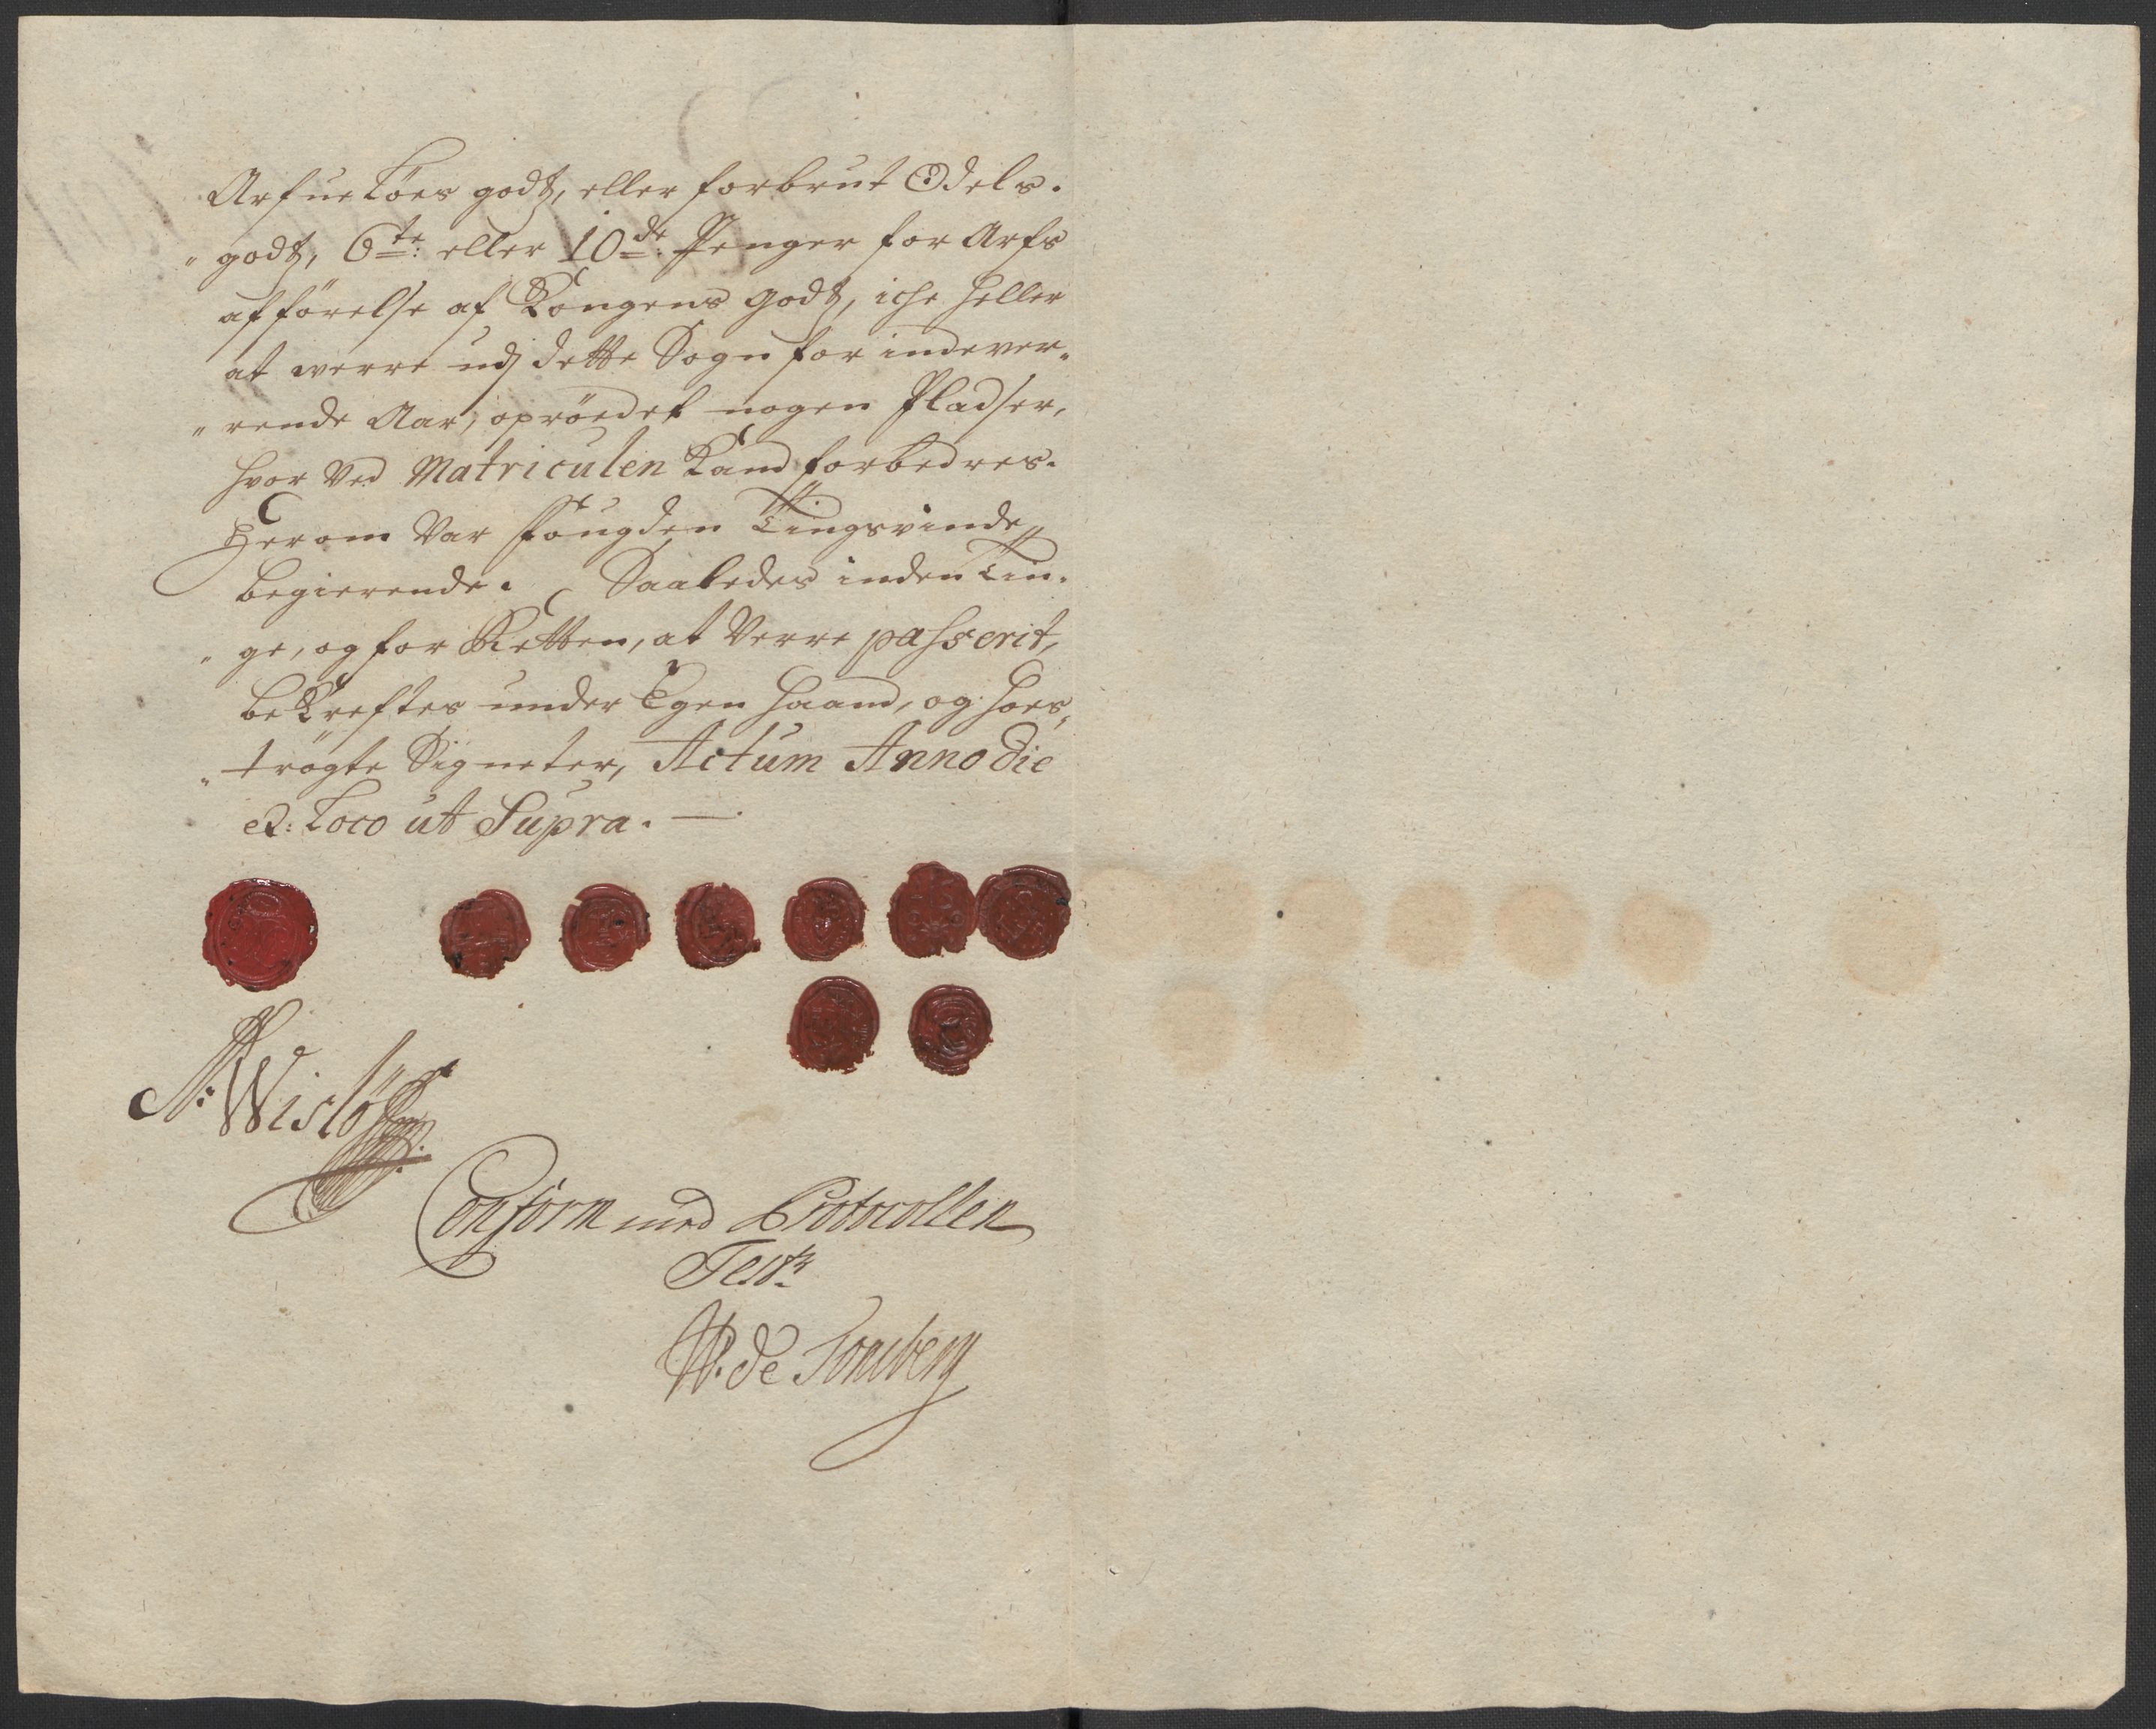 Arfue Löes godtz, eller forbrut Odels.
„ godtz, 6te: eller 10de: Penger for Arfs
afförelse af Kongens godtz, iche heller
at werre udj dette Sogn for indever„
„ rende Aar, oprödet nogen Pladser,
hvor Ved Matriculen Kand forbedres.
Herom Var Fougden Tingsvinde
begierende. Saaledes inden Tin.
„ ge, og for Retten, at Verre passerit,
beKreftes under Egen Haand, og hoes„
„ trögte Signeter, Actum Anno die
et: Loco ut Supra. —
A: Wislöff
Conform med Protocollen
Test:
W. de Tonsberg